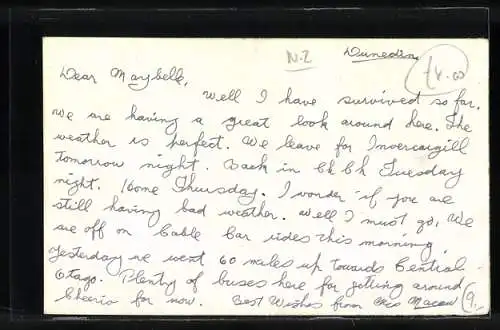 N.Z
Dunedin
Dear Maybelle,
Well I have survived so far.
We are having a great look around here. The
weather is perfect. We leave for Invercargill
tomorrow night. Back in Ch Ch Tuesday
night. Home Thursday. I wonder if you are
still having bad weather. Well I must go, We
are off on Cable Car rides this morning.
Yesterday we went 60 miles up towards Central
Otago. Plenty of buses here for getting around
Cheerio for now. Best Wishes from
9.